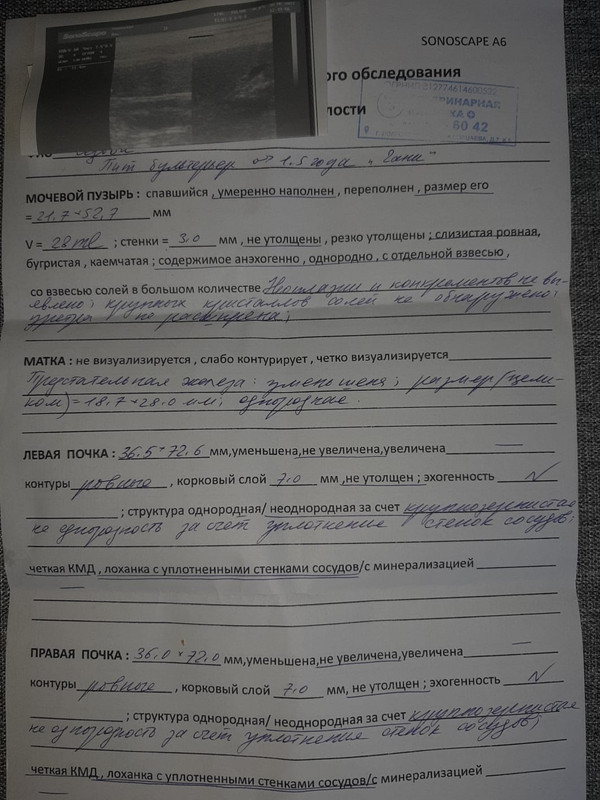 SonoScape
SONOSCAPE A6
ого обследования
лости
60 42
Пит бультерьер от 1.5 года „
МОЧЕВОЙ ПУЗЫРЬ : спавшийся , умеренно наполнен , переполнен , размер его
= 21,7 × 52,7 мм
V = 28 ml ; стенки = 3,0 мм , не утолщены , резко утолщены ; слизистая ровная,
бугристая , каемчатая ; содержимое анэхогенно , однородно , с отдельной взвесью ,
со взвесью солей в большом количестве Неоплазии и конкрементов не вы-
явлено; крупных кристаллов солей не обнаружено;
уретра не расширена;
МАТКА : не визуализируется , слабо контурирует , четко визуализируется
Предстательная железа: уменьшена; размер (цели-
ком) = 18.7 × 28.0 мм; однородная.
ЛЕВАЯ ПОЧКА : 36.5 × 72.6 мм,уменьшена,не увеличена,увеличена —
контуры ровные , корковый слой 7.0 мм ,не утолщен ; эхогенность N
; структура однородная/ неоднородная за счет крупнозернистая
не однородность за счет уплотнение стенок сосудов;
четкая КМД , лоханка с уплотненными стенками сосудов/с минерализацией
—
ПРАВАЯ ПОЧКА : 36.0 × 72.0 мм,уменьшена,не увеличена,увеличена —
контуры ровные , корковый слой 7.0 мм, не утолщен ; эхогенность N
; структура однородная/ неоднородная за счет крупнозернистая
не однородность за счет уплотнение стенок сосудов;
четкая КМД , лоханка с уплотненными стенками сосудов/с минерализацией
—